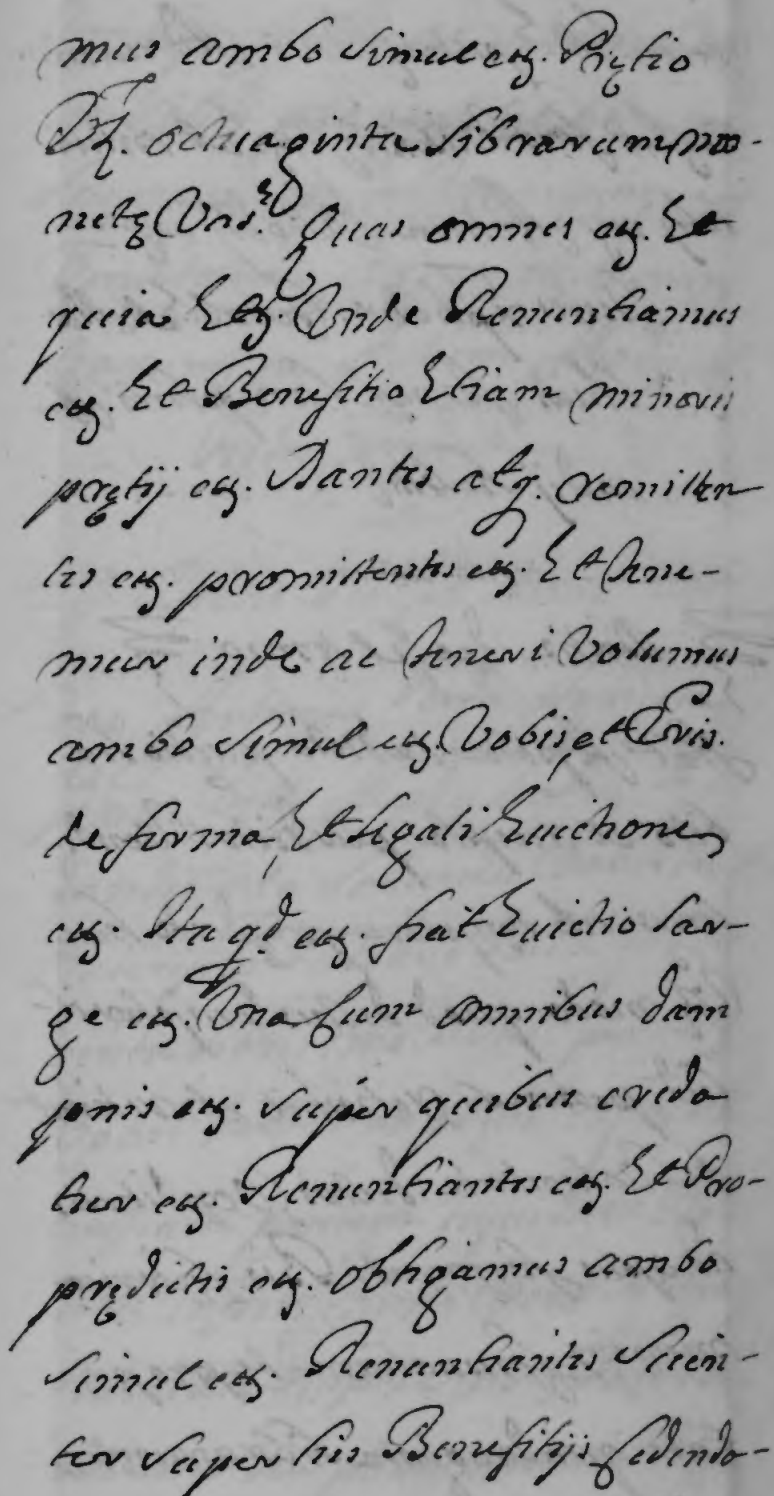 mus ambo simul etz. Prętio
octuaginta librarum mo-
netę Quas omnes etz. Et
quia Etz. Unde Renuntiamus
etz. Et Benefitio Etiam minoris
prętij etz. Dantes atq. remitten
tes etz. promittentes etz. Et tene-
mur inde ac teneri Volumus
ambo simul etz. Vobis, et Vris.
de firma, Et legali Euictione
etz. Ita qd. etz. fiat Euictio lar-
ge etz. Una cum omnibus dam
pnis etz. super quibus creda
tur etz. Renuntiantes etz. Et Pro-
prędictis etz. obligamus ambo
simul etz. Renuntiantes scien-
ter super his Benefitijs cedenda-